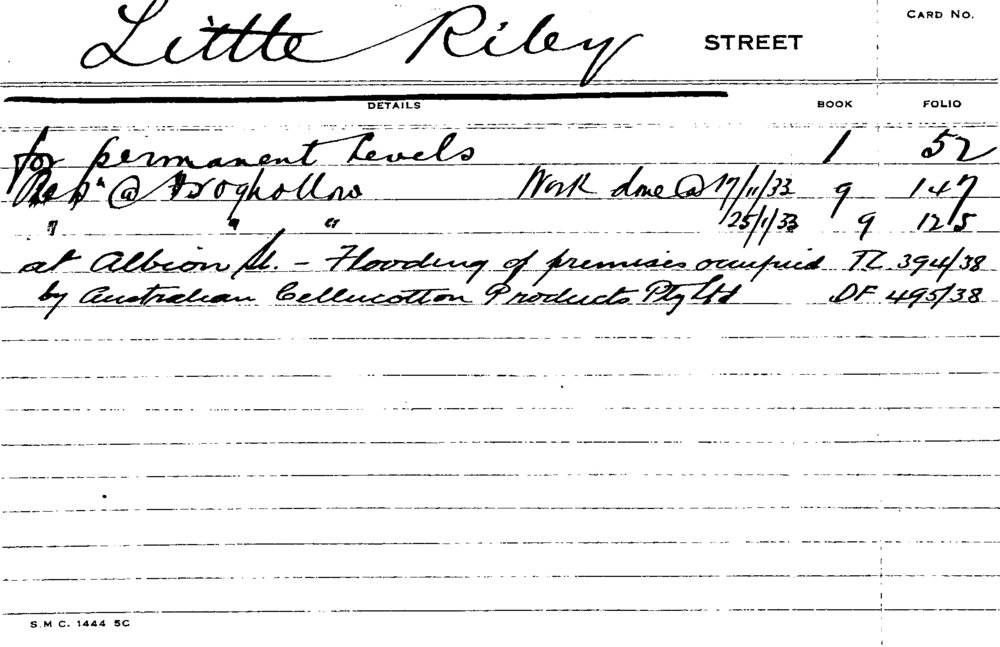 CARD No.
Little Riley STREET
DETAILS BOOK FOLIO
for permanent levels 1 52
@ Froghollow Work done @ 17/11/33 9 147
" " " 25/1/33 9 125
at Albion St. - Flooding of premises occupied TC 394/38
by Australian Cellucotton Products Pty Ltd DF 495/38
S.M C. 1444 5C